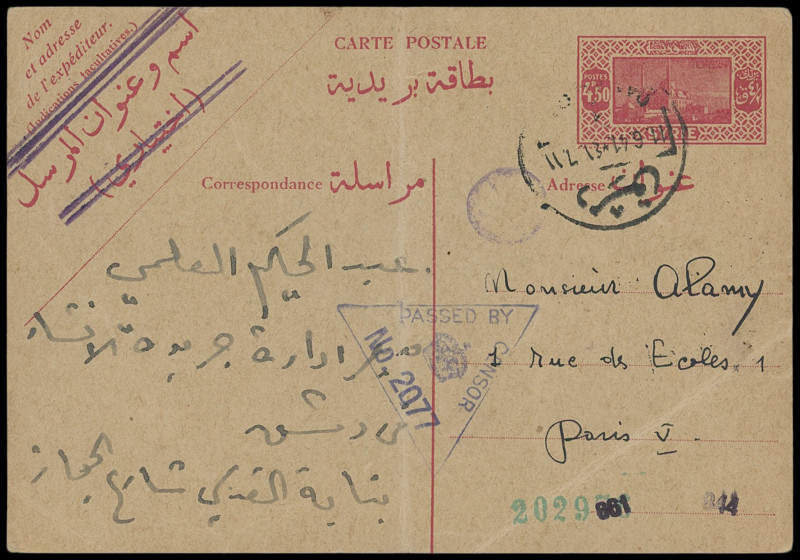 Nom
et adresse
de l'expéditeur.
(Indications facultatives.)
اسم وعنوان المرسل
(اختياري)
CARTE POSTALE
بطاقة بريدية
POSTES
4P.50
Correspondance مراسلة
Adresse عنوان
عبد الحكيم العلمي
ادارة جريدة الانشاء
دمشق
بناية
شارع
PASSED BY
CENSOR
No 2077
Monsieur Alamy
rue des Ecoles 1
Paris V.
2029
661